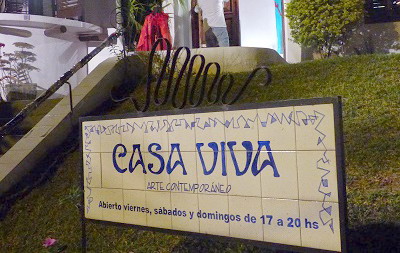 CASA VIVA
ARTE CONTEMPORÁNEO
Abierto viernes, sábados y domingos de 17 a 20 hs